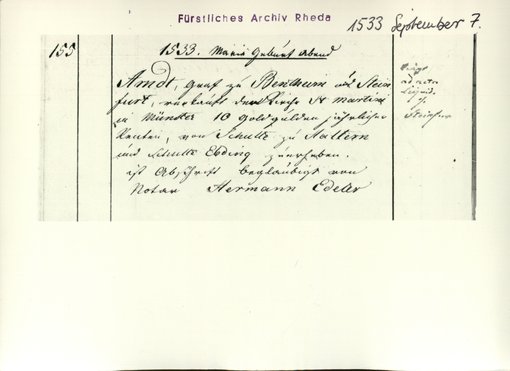 Fürstliches Archiv Rheda
1533 September 7.
155
1533. Mariä Geburt Abend
Arndt, Graf zu Bentheim und Stein
furt, verkauft der Kirche St Martini
zu Münster 10 Goldgulden jährlicher
Renten, von Schulte zu Aaltern
und Schulte Ebding zu erheben.
ist Abschrift beglaubigt von
Notar Hermann Edeler
ad acta